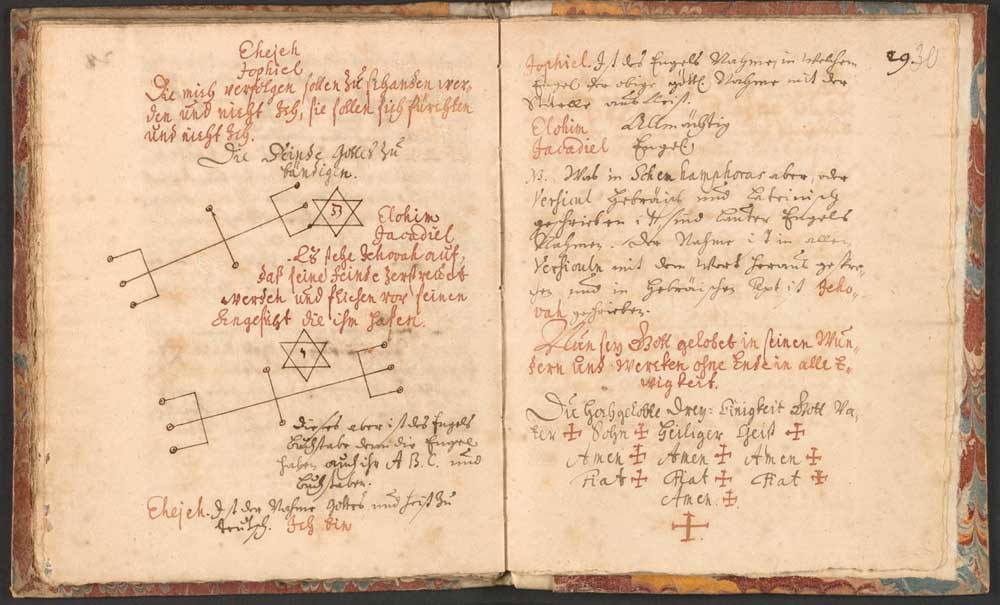 Ehejeh
Jophiel
Die mich verfolgen sollen zu schanden wer-
den und nicht Ich, sie sollen sich fürchten
und nicht Ich.
Die Feinde Gottes zu
bändigen.
53
Elohim
Jacadiel
Es stehe Jehovah auf,
das seine Feinde zerstreuet
werden und fliehen vor seinen
Angesicht die ihm hassen.
4
Dieses aber ist des Engels
Buchstabe denn die Engel
haben auch ihr A B C. und
Buchstaben.
Ehejeh. Ist der Nahme Gottes und heist zu
teutsch. Ich bin
29 30
Jophiel. Ist des Engels Nahme, in welchem
Engel der obige göttl. Nahme mit der
Stelle
Elohim Allmächtig
Jacadiel Engel
N. Was in Schemhamphoras aber, oder
Versicul Hebräisch und Lateinisch
geschrieben ist, sind lauter Engels
Nahmen. Der Nahme ist in allen
Versiculn mit dem Wort heraus gezo-
gen, und in Hebräischen Text ist Jeho-
vah geschrieben.
Nun sey Gott gelobet in seinen Wun-
dern und Wercken ohne Ende in alle E-
wigkeit.
Die Hochgelobte Drey-Einigkeit Gott Va-
ter ✠ Sohn ✠ Heiliger Geist ✠
Amen ✠ Amen ✠ Amen ✠
Fiat ✠ Fiat ✠ Fiat ✠
Amen ✠
✠